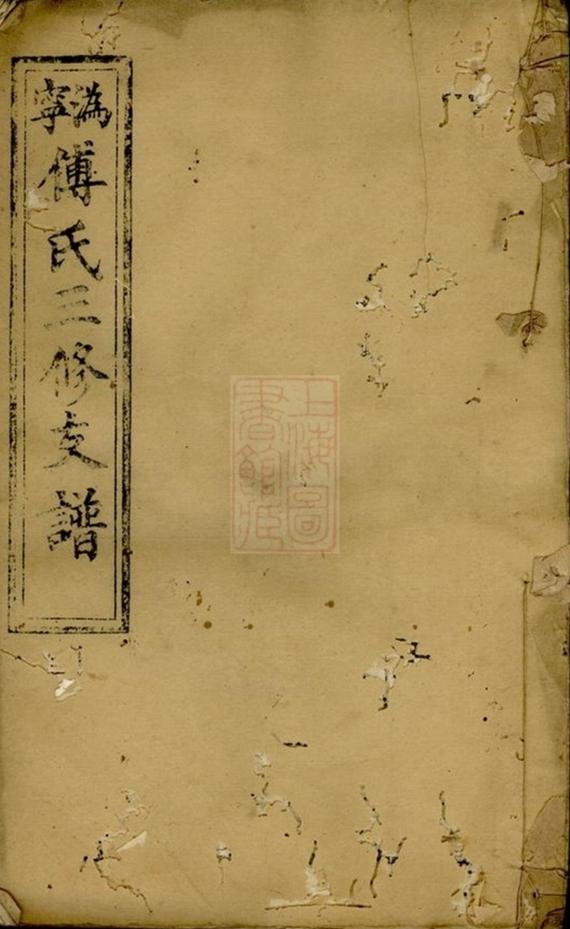 溈寧
傅氏三修支譜
上海圖
書館藏